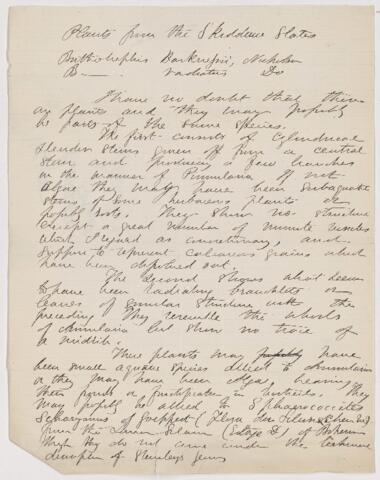 Plants from the Skiddaw Slates
Buthotrephis Harknessii, Nicholson
B—. radiatus Do
I have no doubt that these
are plants and they may possibly
be parts of the same species.
The first consists of Cylindrical
slender stems given off from a central
stem and producing a few branches
in the manner of Pinnularia. If not
Algae they may have been subaquatic
stems of some herbaceous plants or
possibly roots. They show no structure
except a great number of minute
which I regard as concretionary, and
suppose to represent calcareous grains which
have been dissolved out.
The Second shows what seem
to have been radiating branchlets or
leaves of similar structure with the
preceding. They resemble the whorls
of Annularia but show no trace of
a midrib.
These plants may possibly have
been small aquatic species allied to Annularia
or they may have been Algae, bearing
their fronds or in verticils. They
may possibly be allied to Sphaerococcites
of Goeppert (Flora der Silurischen &c)
from the Lower Silurian (Etage D) of Bohemia
though they do not come under the
description of Sternberg's genus